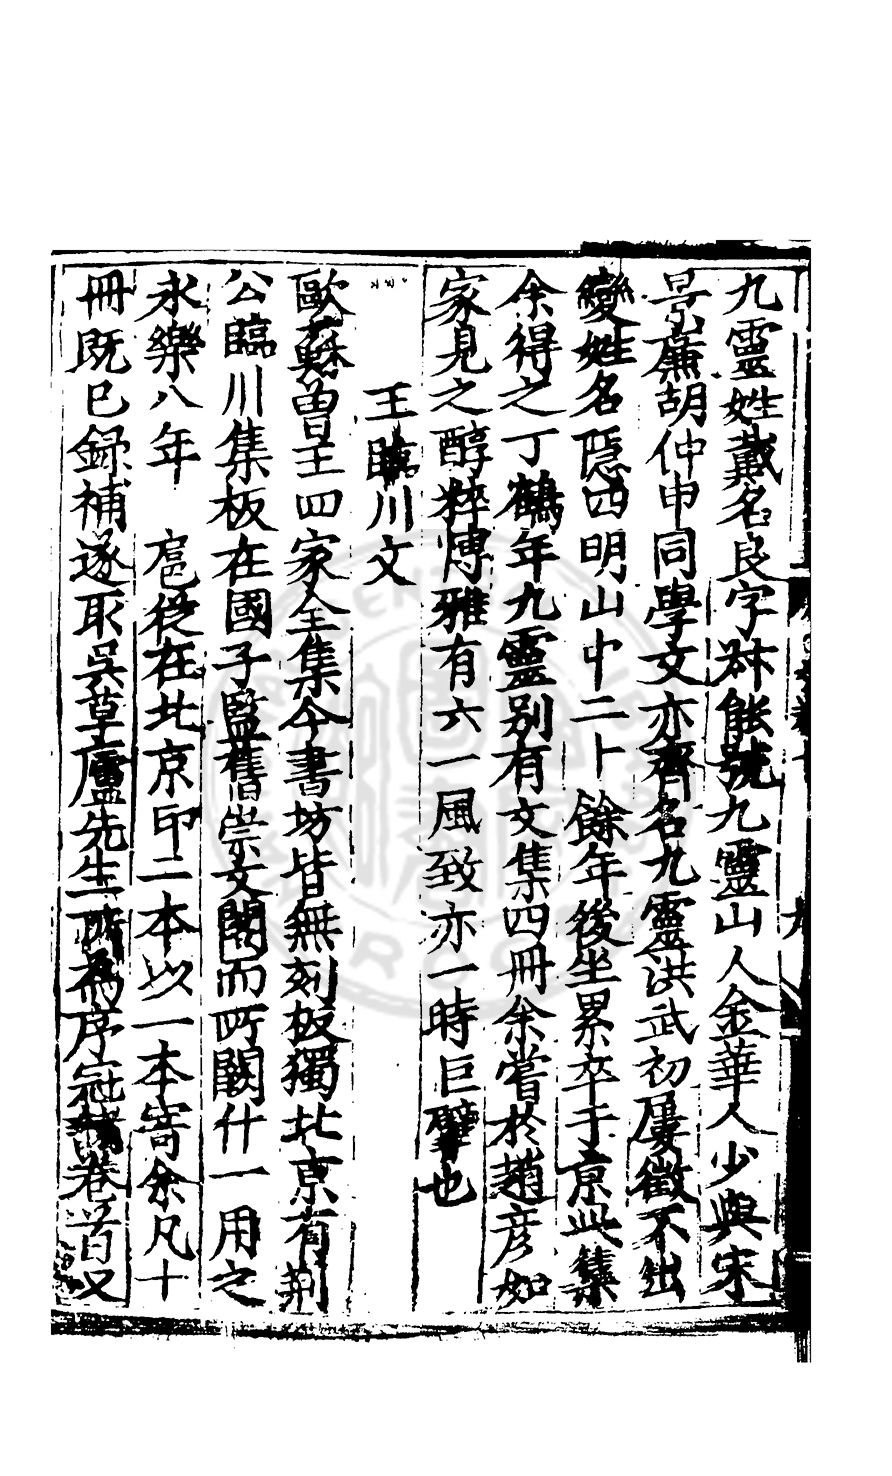 九靈姓戴名良字叔能號九靈山人金華人少與宋
景廉胡仲申同學文亦齊名九靈洪武初屢徵不出
變姓名隱四明山中二十餘年後坐累卒于京此集
余得之丁鶴年九靈别有文集四冊余嘗於趙彦如
家見之醇粹博雅有六一風致亦一時巨擘也
王臨川文
歐蘇曾王四家全集今書坊皆無刻板獨北京有荆
公臨川集板在國子監舊崇文閣而所闕什一用之
永樂八年 扈從在北京印二本以一本寄余凡十
冊既已録補遂取吳草廬先生所為序冠諸卷首又